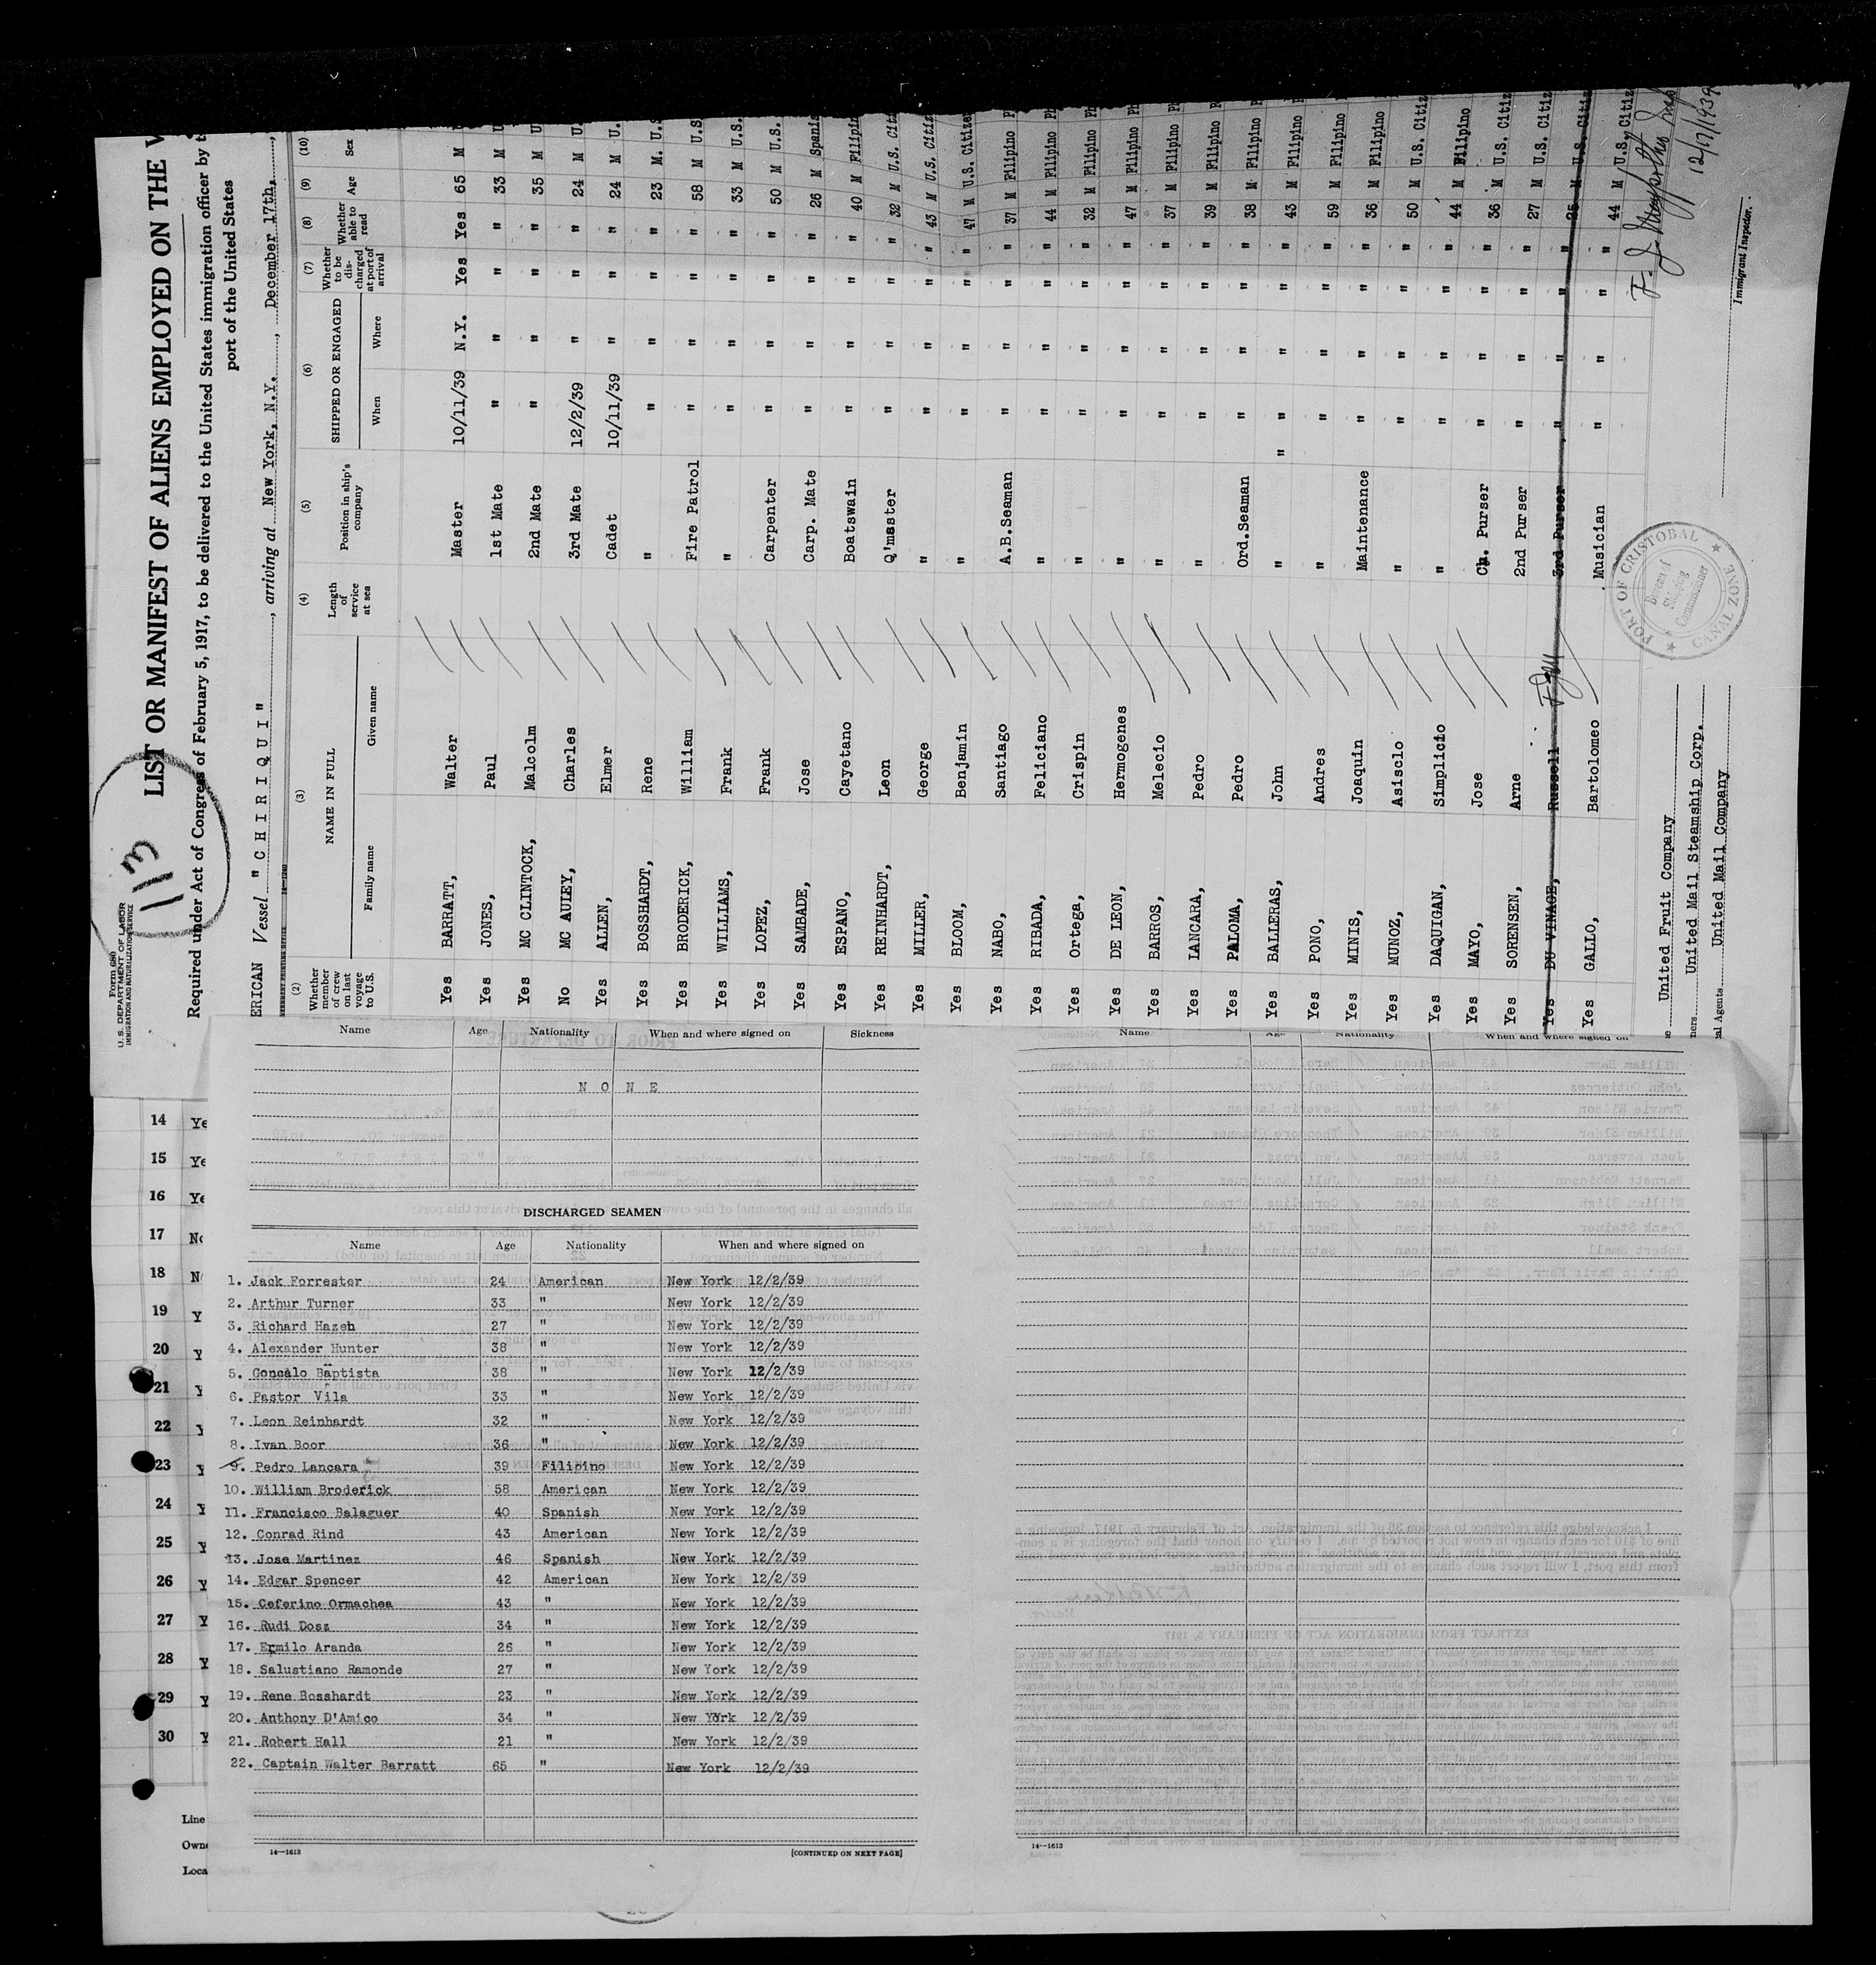 Form 680
U. S. DEPARTMENT OF LABOR
IMMIGRATION AND NATURALIZATION SERVICE
LIST OR MANIFEST OF ALIENS EMPLOYED ON THE
Required under Act of Congress of February 5, 1917, to be delivered to the United States immigration officer by
port of the United States
ERICAN Vessel "CHIRIQUI", arriving at New York, N.Y., December 17th,
(2) (3) (4) (5) (6) (7) (8) (9) (10)
Whether member of crew on last voyage to U.S. NAME IN FULL Length of service at sea Position in ship's company SHIPPED OR ENGAGED Whether to be discharged at port of arrival Whether able to read Age Sex
Family name Given name When Where
Yes BARRATT, Walter Master 10/11/39 N.Y. Yes Yes 65 M
Yes JONES, Paul 1st Mate " " " " 33 M
Yes MC CLINTOCK, Malcolm 2nd Mate " " " " 35 M
No MC AULEY, Charles 3rd Mate 12/2/39 " " " 24 M U.
Yes ALLEN, Elmer Cadet 10/11/39 " " " 24 M U.
Yes BOSSHARDT, Rene " " " " " 23 M. U.S
Yes BRODERICK, William Fire Patrol " " " " 58 M U.S
Yes WILLIAMS, Frank " " " " " 33 M U.S.
Yes LOPEZ, Frank Carpenter " " " " 50 M U.S.
Yes SAMBADE, Jose Carp. Mate " " " " 26 M Spanis
Yes ESPANO, Cayetano Boatswain " " " " 40 M Filipin
Yes REINHARDT, Leon Q'master " " " " 32 M U.S. Cit
Yes MILLER, George " " " " " 43 M U.S. Citiz
Yes BLOOM, Benjamin " " " " " 47 M U.S. Citizen
Yes NABO, Santiago A.B.Seaman " " " " 37 M Filipino P
Yes RIBADA, Feliciano " " " " " 44 M Filipino Ph
Yes Ortega, Crispin " " " " " 32 M Filipino Ph
Yes DE LEON, Hermogenes " " " " " 47 M Filipino Ph
Yes BARROS, Melecio " " " " " 37 M Filipino Ph
Yes LANCARA, Pedro " " " " " 39 M Filipino P
Yes PALOMA, Pedro Ord.Seaman " " " " 38 M Filipino P
Yes BALLERAS, John " " " " " 43 M Filipino
Yes PONO, Andres " " " " " 59 M Filipino
Yes MINIS, Joaquin Maintenance " " " " 36 M Filipino
Yes MUNOZ, Asisclo " " " " " 50 M U.S. Citiz
Yes DAQUIGAN, Simplicio " " " " " 44 M Filipino
Yes MAYO, Jose Ch. Purser " " " " 36 M U.S. Citiz
Yes SORENSEN, Arne 2nd Purser " " " " 27 M U.S. Citiz
Yes DU VINAGE, Russell 3rd Purser " " " " 25 M U.S. Citiz
Yes GALLO, Bartolomeo Musician " " " " 44 M U.S. Citiz
12/17/1939
Immigrant Inspector.
PORT OF CRISTOBAL
Bureau of Shipping Commissioner
CANAL ZONE
United Fruit Company
ners United Mail Steamship Corp.
al Agents United Mail Company
Name Age Nationality When and where signed on Sickness
NONE
DISCHARGED SEAMEN
Name Age Nationality When and where signed on
1. Jack Forrester 24 American New York 12/2/39
2. Arthur Turner 33 " New York 12/2/39
3. Richard Hazeh 27 " New York 12/2/39
4. Alexander Hunter 38 " New York 12/2/39
5. Goncalo Baptista 38 " New York 12/2/39
6. Pastor Vila 33 " New York 12/2/39
7. Leon Reinhardt 32 " New York 12/2/39
8. Ivan Boor 36 " New York 12/2/39
9. Pedro Lancara 39 Filipino New York 12/2/39
10. William Broderick 58 American New York 12/2/39
11. Francisco Balaguer 40 Spanish New York 12/2/39
12. Conrad Rind 43 American New York 12/2/39
13. Jose Martinez 46 Spanish New York 12/2/39
14. Edgar Spencer 42 American New York 12/2/39
15. Ceferino Ormachea 43 " New York 12/2/39
16. Rudi Dosz 34 " New York 12/2/39
17. Ermilo Aranda 26 " New York 12/2/39
18. Salustiano Ramonde 27 " New York 12/2/39
19. Rene Bosshardt 23 " New York 12/2/39
20. Anthony D'Amico 34 " New York 12/2/39
21. Robert Hall 21 " New York 12/2/39
22. Captain Walter Barratt 65 " New York 12/2/39
14—1613 [CONTINUED ON NEXT PAGE]
Name Age Nationality When and where signed on
14—1613
14 Ye
15 Ye
16 Ye
17 No
18 N
19 Y
20 Y
21 Y
22 Y
23 Y
24 Y
25 Y
26 Y
27 Y
28 Y
29 Y
30 Y
Line
Owne
Loca